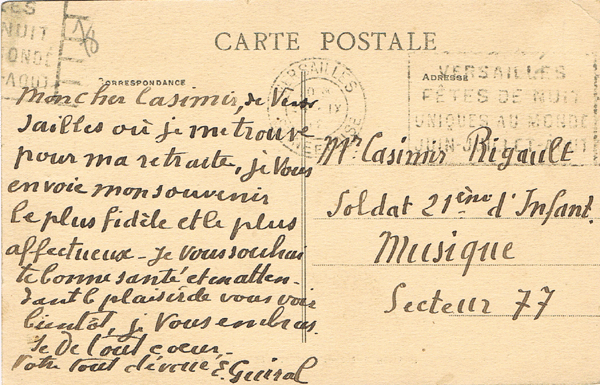 LES
NUIT
MONDE
-AOUT
CARTE POSTALE
VERSAILLES
CORRESPONDANCE
ADRESSE
VERSAILLES
FÊTES DE NUIT
UNIQUES AU MONDE
JUIN-JUILLET-AOUT
Mon cher Casimir, de Ver-
sailles où je me trouve
pour ma retraite, je vous
envoie mon souvenir
le plus fidèle et le plus
affectueux - Je vous souhai
te bonne santé et en atten-
dant le plaisir de vous voir
bientôt, je vous embras
se de tout coeur.
Votre tout dévoué E. Guiral
Mr Casimir Rigault
Soldat 21ème d'Infant.
Musique
Secteur 77